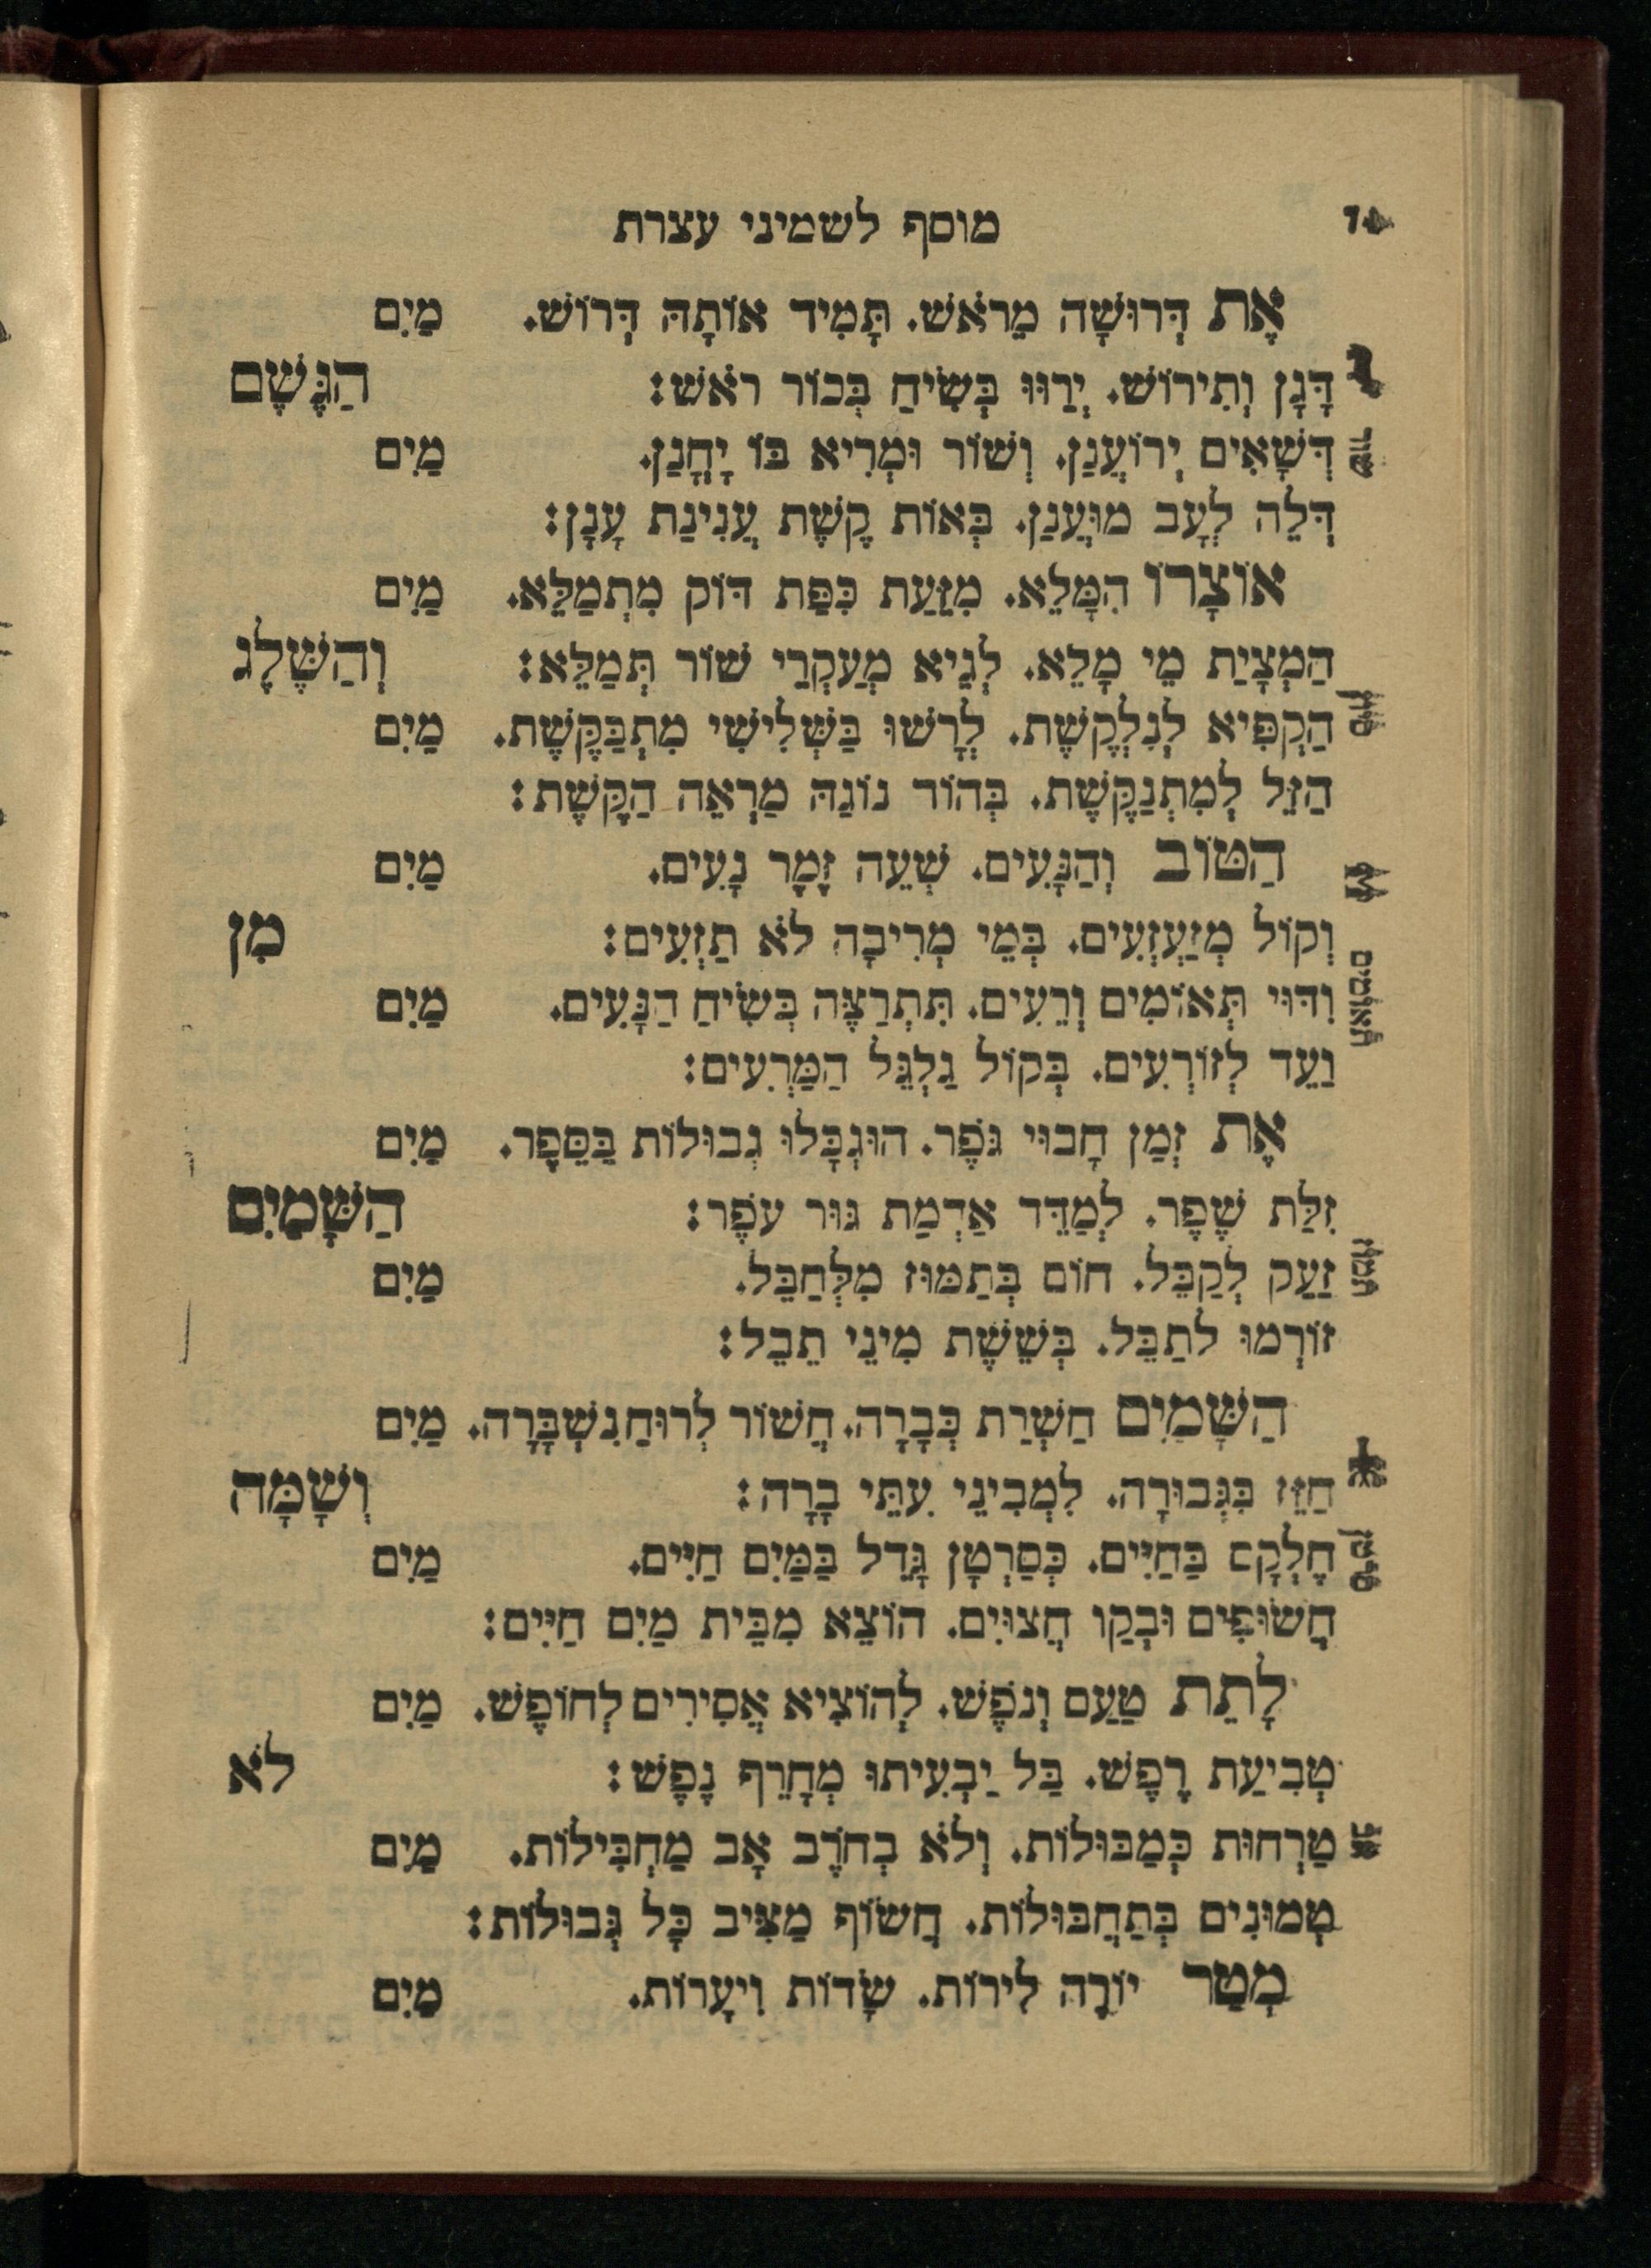 מוסף לשמיני עצרת
אֶת דְּרוּשָׁה מֵרֹאשׁ. תָּמִיד אוֹתָהּ דְּרוֹשׁ. מַיִם
דָּגָן וְתִירוֹשׁ. יְרַוּוּ בְּשִׂיחַ בְּכוֹר רֹאשׁ: הַגֶּשֶׁם
דְּשָׁאִים יְרוֹעֲנַן. וְשׁוֹר וּמְרִיא בּוֹ יָחֳנַן. מַיִם
שור
דְּלֵה לְעָב מוּעֲנַן. בְּאוֹת קֶשֶׁת עֲנִינַת עָנָן:
אוֹצָרוֹ הִמָּלֵא. מִזַּעַת כִּפַּת דּוֹק מִתְמַלֵּא. מַיִם
הַמְצָיַת מֵי מָלֵא. לְגֵיא מְעַקְרֵי שׁוֹר תְּמַלֵּא: וְהַשֶּׁלֶג
הַקְפִּיא לְנִלְקֶשֶׁת. לְרָשׁוּ בַּשְּׁלִישִׁי מִתְבַּקֶּשֶׁת. מַיִם
הַזֵּל לְמִתְנַקֶּשֶׁת. בְּהוֹר נוֹגַהּ מַרְאֵה הַקֶּשֶׁת:
הַטּוֹב וְהַנָּעִים. שְׁעֵה זֶמֶר נָעִים. מַיִם
וְקוֹל מְזַעְזְעִים. בְּמֵי מְרִיבָה לֹא תַזְעִים: מִן
תאומים
וִדּוּי תְּאוֹמִים וְרֵעִים. תִּתְרַצֶּה בְּשִׂיחַ הַנָּעִים. מַיִם
וַעֵד לְזוֹרְעִים. בְּקוֹל גַלְגַּל הַמַּרְעִים:
אֶת זְמַן חָבוּי גֹּפֶר. הוּגְבָּלוּ גְבוּלוֹת בַּסֵּפֶר. מַיִם
זִלַּת שֶׁפֶר. לְמַדֵּד אַדְמַת גּוּר עֹפֶר: הַשָּׁמַיִם
תמוז
זַעַק לְקַבֵּל. חוֹם בְּתַמּוּז מִלְּחַבֵּל. מַיִם
זוֹרְמוּ לתַבֵּל. בְּשֵׁשֶׁת מִינֵי תֵבֵל:
הַשָּׁמַיִם חַשְׁרַת כְּבָרָה. חֲשׁוֹר לְרוּחַ נִשְׁבָּרָה. מַיִם
חַזֵּז בִּגְּבוּרָה. לִמְבִינֵי עִתֵּי בָרָה: וְשָׁמָּה
חֶלְקָם בַּחַיִּים. כְּסַרְטָן גָּדֵל בַּמַּיִם חַיִּים. מַיִם
חֲשׂוּפִים וּבְקַו חֲצוּיִם. הוֹצֵא מִבֵּית מַיִם חַיִּים:
לָתֵת טַעַם וְנֹפֶשׁ. לְהוֹצִיא אֲסִירִים לְחוֹפֶשׁ. מַיִם
טְבִיעַת רֶפֶשׁ. בַּל יַבְעִיתוּ מְחָרֵף נֶפֶשׁ: לֹא
טַרְחוּת כְּמַבּוּלוֹת. וְלֹא בְחֹרֶב אָב מַחְבִּילוֹת. מַיִם
טְמוּנִים בְּתַחְבּוּלוֹת. חֲשׂוֹף מַצִּיב כָּל גְּבוּלוֹת:
מְטַר יוֹרֶה לִירוֹת. שָׂדוֹת וִיעָרוֹת. מַיִם